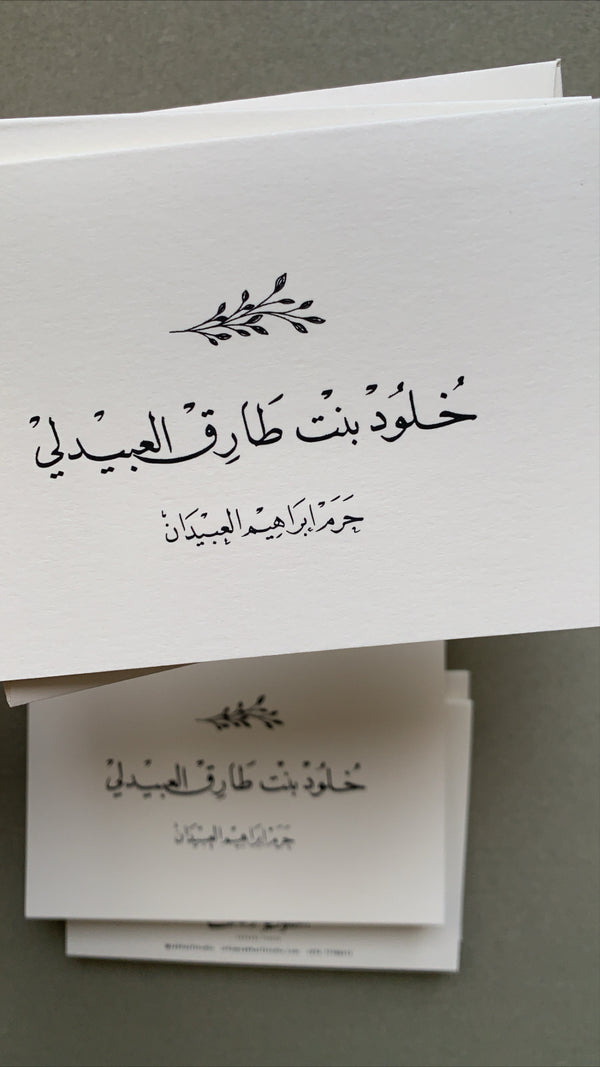 خُلُودْ بنْت طَارِقْ العبيْدليْ
حَرَمْ إبرَاهِيْم العبيْدَانْ
خُلُودْ بنْت طَارِقْ العبيْدليْ
حَرَمْ إبرَاهِيْم العبيْدَانْ